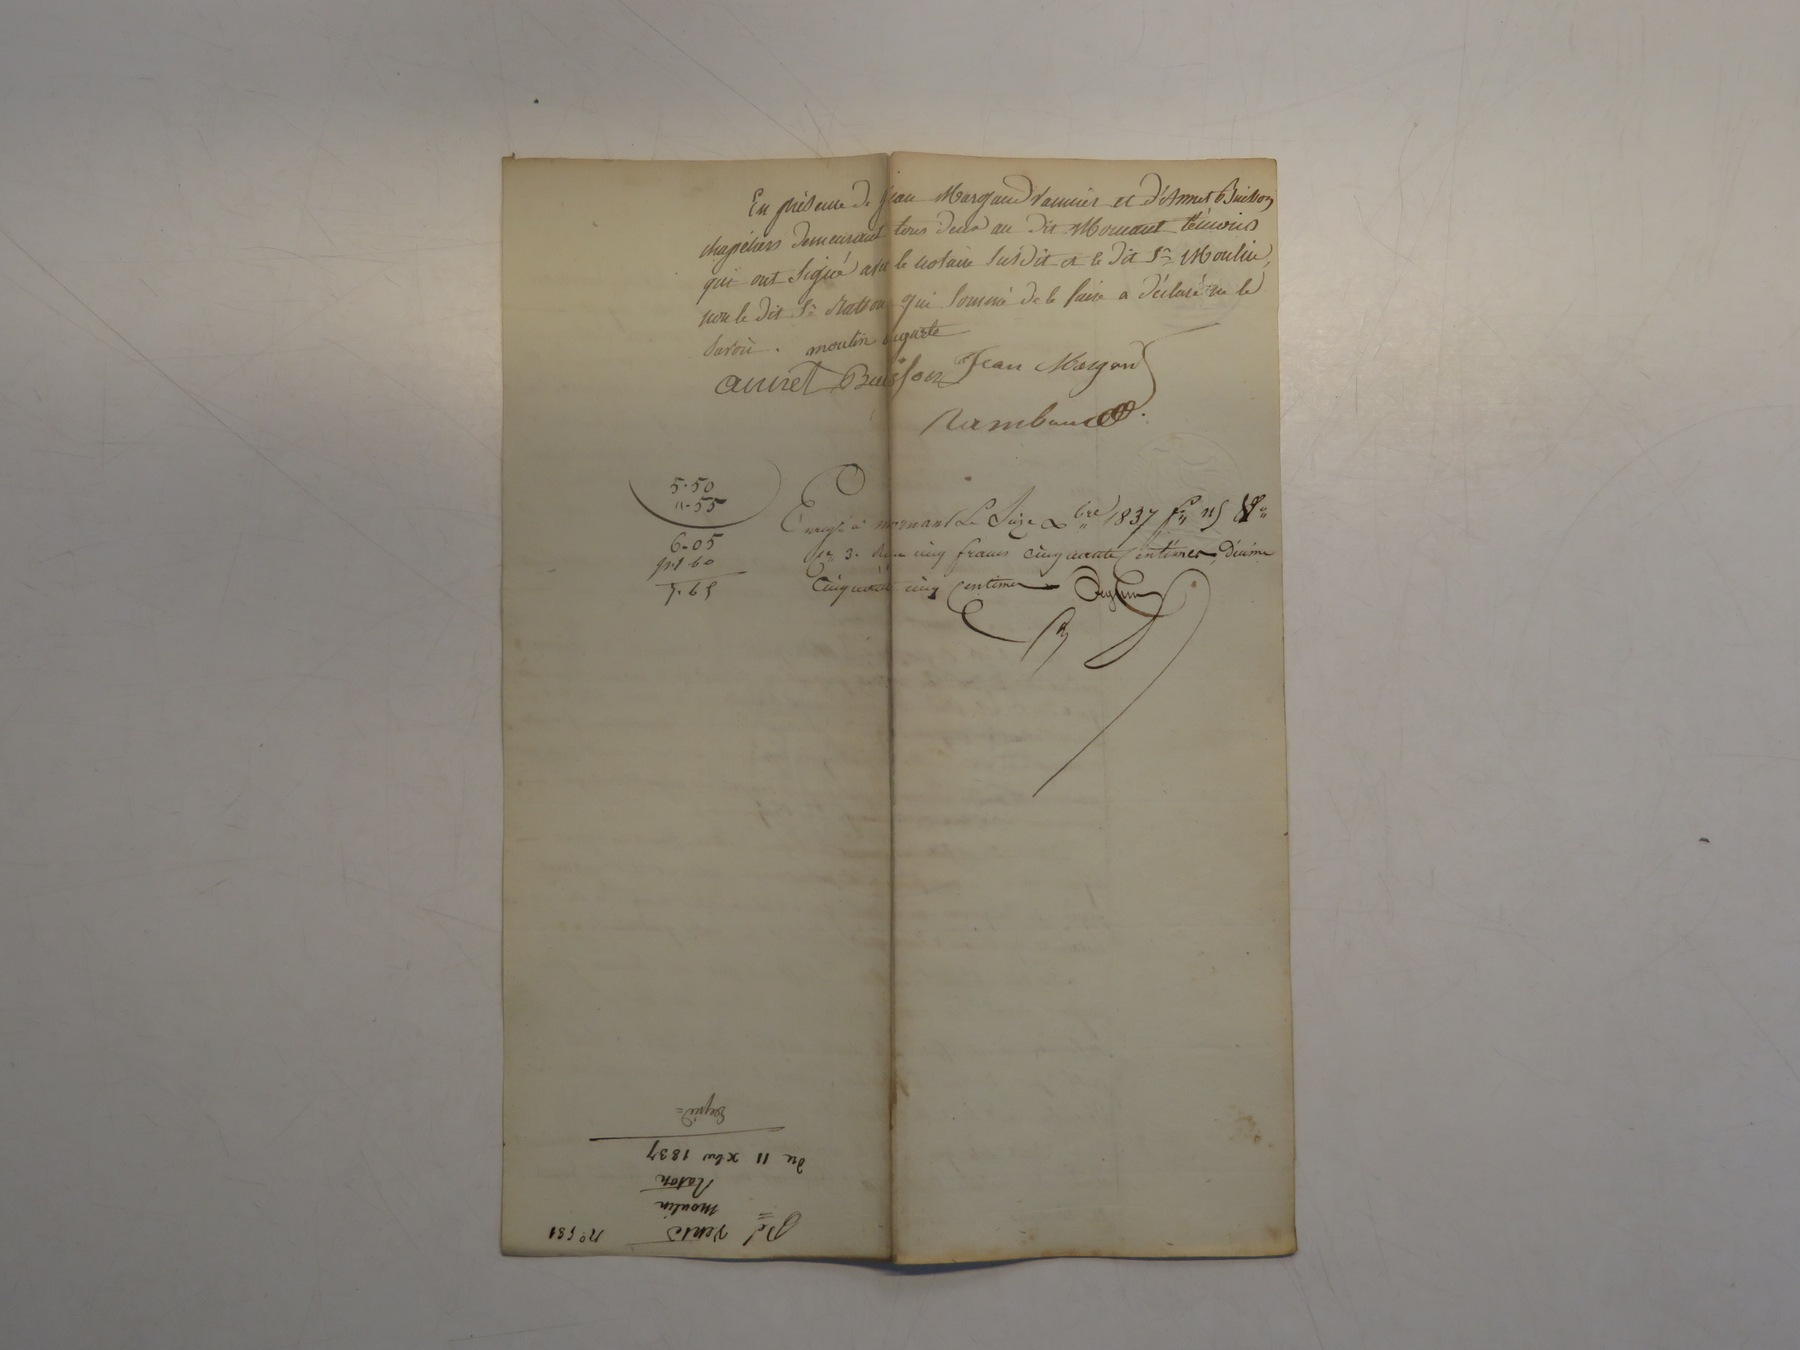 En présence de Jean Margand vannier et d'Annet Buisson
chapéliers demeurant tous deux au dit Mornant témoins
qui ont signé avec le notaire susdit et le dit Sr. Moulin,
non le dit Sr. Ratton qui sommé de le faire a déclaré ne le
savoir.
moulin auguste
annet Buisson Jean Margand
Rambaud
5.50
"-55
6-05
60
7.65
à mornant Le Seize Xbre 1837 fo 115 Vo
3. Reçu cinq francs cinquante centimes, Décime
Cinquante cinq centimes
No. 581
Pd Vente
moulin
Raton
du 11 xbre 1837
Expéd=